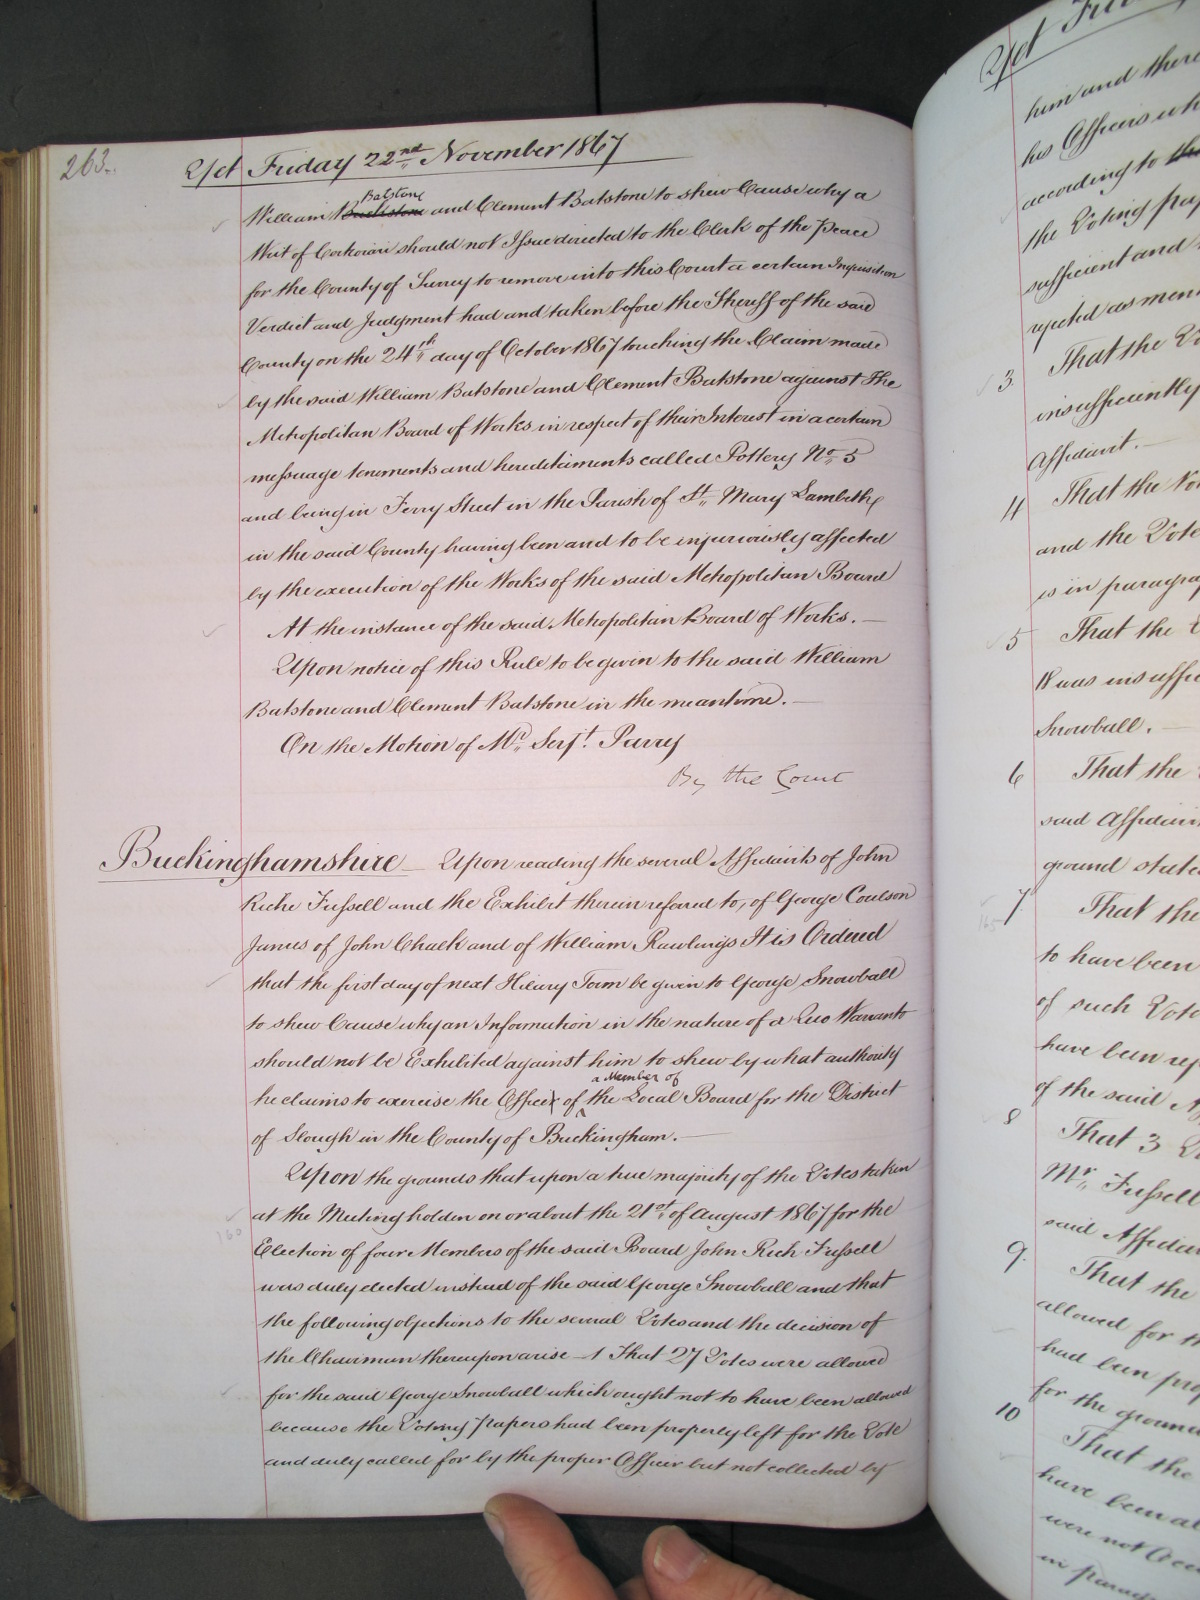 263.
Yet Friday 22nd November 1867
Batstone
William Battstone and Clement Batstone to shew Cause why a
Writ of Certiorari should not Issue directed to the Clerk of the Peace
for the County of Surrey to remove into this Court a certain Inquisition
Verdict and Judgment had and taken before the Sheriff of the said
County on the 24th day of October 1867 touching the Claim made
by the said William Batstone and Clement Batstone against The
Metropolitan Board of Works in respect of their Interest in a certain
messuage tenements and hereditaments called Pottery No. 5
and being in Ferry Street in the Parish of St. Mary Lambeth
in the said County having been and to be injuriously affected
by the execution of the Works of the said Metropolitan Board
At the instance of the said Metropolitan Board of Works.—
Upon notice of this Rule to be given to the said William
Batstone and Clement Batstone in the meantime.—
On the Motion of Mr. Serjt. Parry
By the Court
Buckinghamshire — Upon reading the several Affidavits of John
Riche Fussell and the Exhibit therein referred to, of George Coulson
James of John Chalk and of William Rawlings It is Ordered
that the first day of next Hilary Term be given to George Snowball
to shew Cause why an Information in the nature of a Quo Warranto
should not be Exhibited against him to shew by what authority
a Member of
he claims to exercise the Office of the Local Board for the District
of Slough in the County of Buckingham.—
Upon the grounds that upon a true majority of the Votes taken
at the Meeting holden on or about the 21st of August 1867 for the
Election of four Members of the said Board John Rich Fussell
was duly elected instead of the said George Snowball and that
the following objections to the several Votes and the decision of
the Chairman thereupon arise — 1 That 27 Votes were allowed
for the said George Snowball which ought not to have been allowed
because the Voting Papers had been properly left for the Vote
and duly called for by the proper Officer but not collected by
Yet
him and there
his Officers wh
according to
the Voting pap
sufficient and
rejected as men
3. That the Vo
insufficiently
Affidavit.—
4 That the Vo
and the Vote
is in paragra
5 That the
was insuffic
Snowball.—
6 That the
said Affidavi
ground state
7 That the
to have been
of such Vote
have been rej
of the said A
8 That 3 Vo
Mr. Fussell
said Affidav
9. That the
allowed for th
had been prop
for the ground
10 That the
have been al
were not
in parag